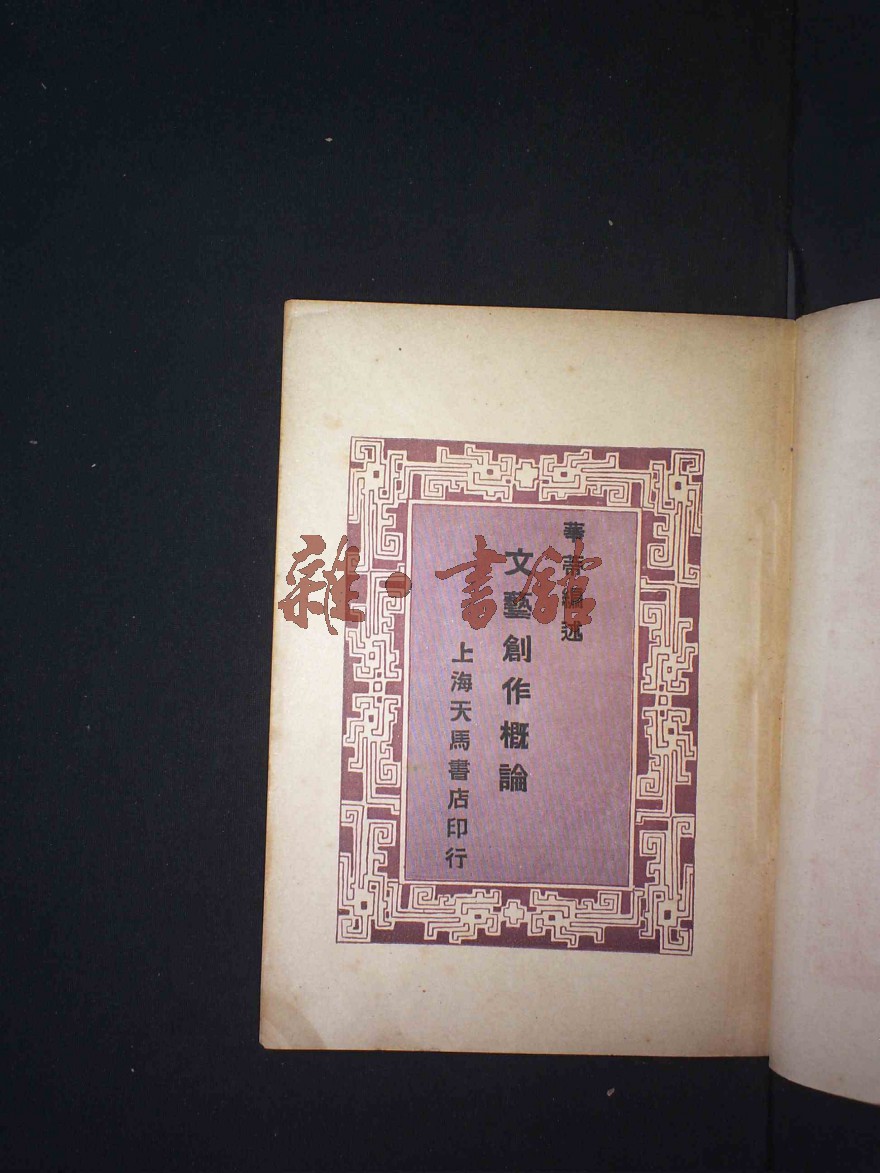 華蒂編述
文藝創作概論
上海天馬書店印行
雜·書館